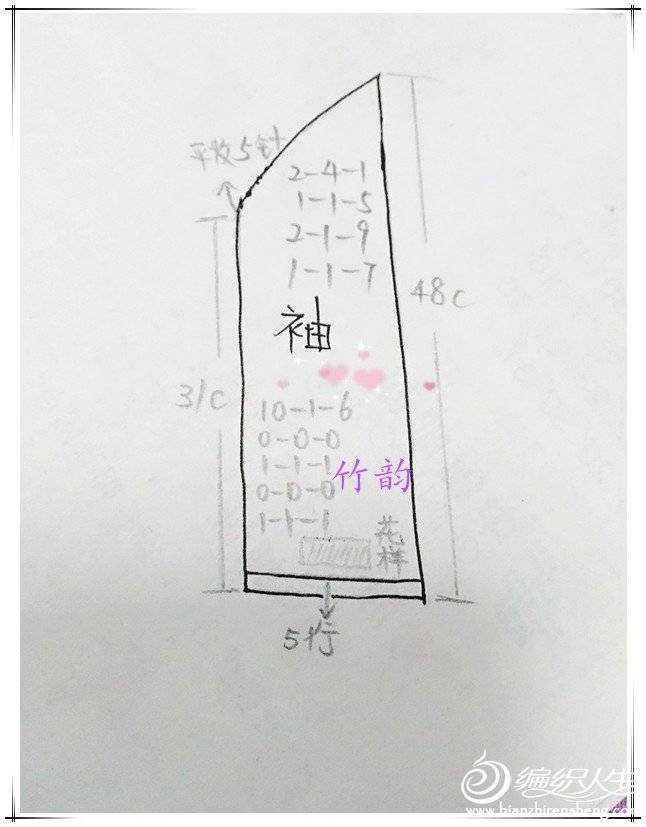 平收5针
2-4-1
1-1-5
2-1-9
1-1-7
48c
袖
31c
10-1-6
0-0-0
1-1-1
0-0-0
1-1-1
竹韵
花样
5行
编织人生
www.bianzhirensheng.com